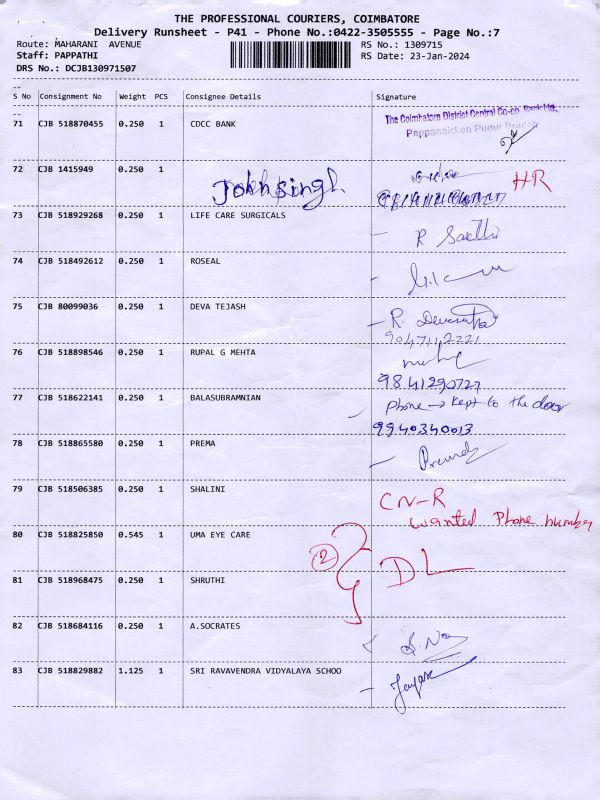 THE PROFESSIONAL COURIERS, COIMBATORE
Delivery Runsheet - P41 - Phone No.:0422-3505555 - Page No.:7
Route: MAHARANI AVENUE RS No.: 1309715
Staff: PAPPATHI RS Date: 23-Jan-2024
DRS No.: DCJB130971507
S No Consignment No Weight PCS Consignee Details Signature
The Coimbatore District Central Co-op. Bank Ltd.
71 CJB 518870455 0.250 1 CDCC BANK
Pappanaicken Pudur Branch
72 CJB 1415949 0.250 1
Jokhsingh HR
73 CJB 518929268 0.250 1 LIFE CARE SURGICALS
R Sacthi
74 CJB 518492612 0.250 1 ROSEAL
75 CJB 80099036 0.250 1 DEVA TEJASH
R.
9047112221
76 CJB 518898546 0.250 1 RUPAL G MEHTA
9841290727
77 CJB 518622141 0.250 1 BALASUBRAMNIAN
Phone → Kept to the door
9940340013
78 CJB 518865580 0.250 1 PREMA
79 CJB 518506385 0.250 1 SHALINI
CN-R
Wanted Phone number
80 CJB 518825850 0.545 1 UMA EYE CARE
2 DL
81 CJB 518968475 0.250 1 SHRUTHI
82 CJB 518684116 0.250 1 A.SOCRATES
83 CJB 518829882 1.125 1 SRI RAVAVENDRA VIDYALAYA SCHOO